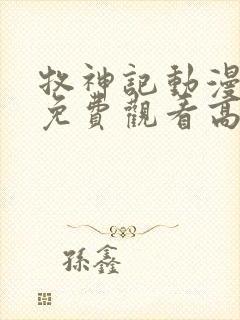 牧神記動漫
免費觀看高
孫鑫